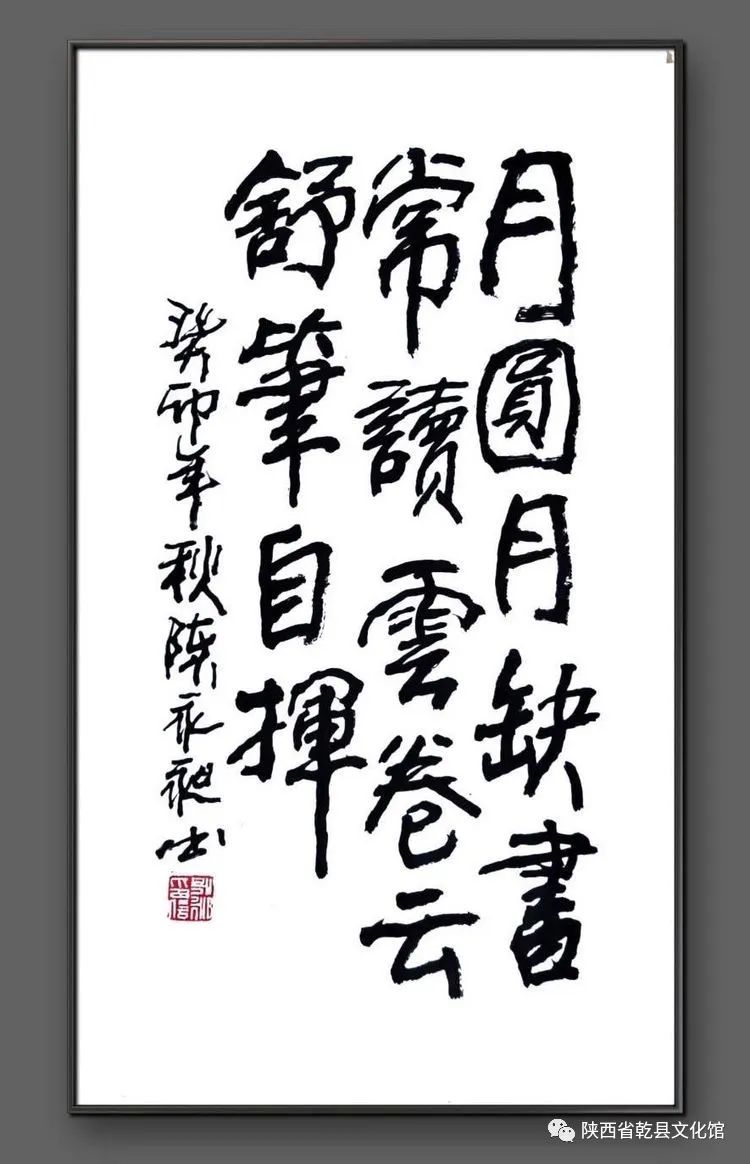 月圓月缺書
常讀雲卷云
舒筆自揮
癸卯年秋陈永书
陕西省乾县文化馆